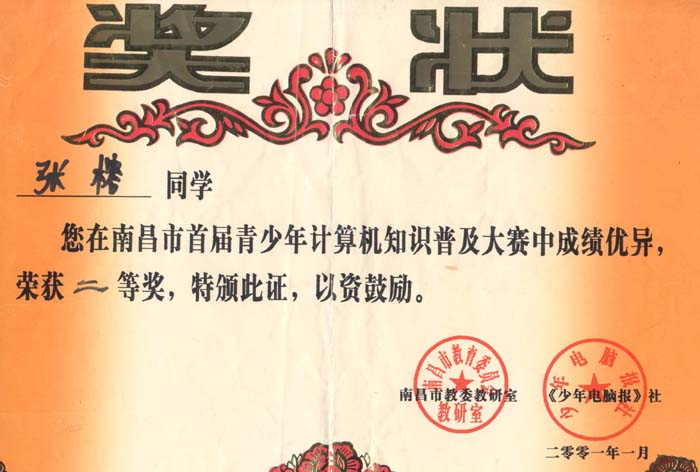 奖状
张榜 同学
您在南昌市首届青少年计算机知识普及大赛中成绩优异，
荣获 二 等奖，特颁此证，以资鼓励。
南昌市教育委员会
教研室
少年电脑报社
南昌市教委教研室 《少年电脑报》社
二零零一年一月